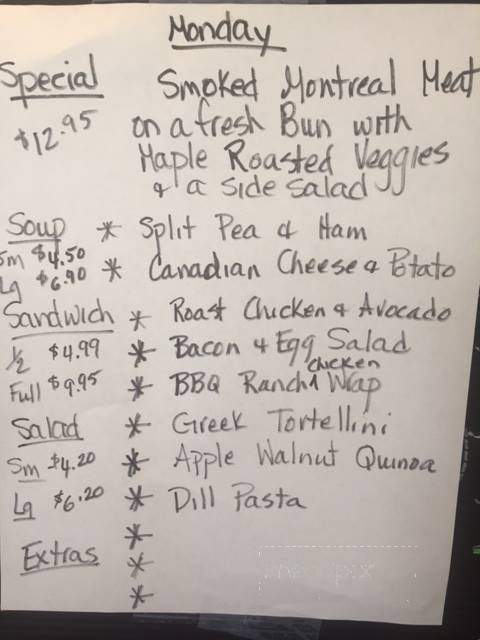 Monday
Special Smoked Montreal Meat
$12.95 on a fresh Bun with
Maple Roasted Veggies
& a side salad
Soup * Split Pea & Ham
Sm $4.50
Lg $6.90 * Canadian Cheese & Potato
Sandwich * Roast Chicken & Avocado
1/2 $4.99 * Bacon & Egg Salad
Full $9.95 * BBQ Ranch chicken Wrap
Salad * Greek Tortellini
Sm $4.20 * Apple Walnut Quinoa
Lg $6.20 * Dill Pasta
*
Extras *
*